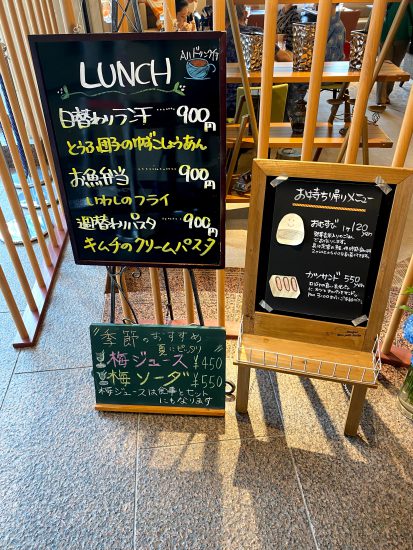 LUNCH
Allドリンク付
日替わりランチ 900円
とうふ団子のゆずこしょうあん
お魚弁当 900円
いわしのフライ
週替わりパスタ 900円
キムチのクリームパスタ
季節のおすすめ
夏にピッタリ
梅ジュース ¥450
梅ソーダ ¥550
梅ジュースは食事とセット
にもなります
お持ち帰りメニュー
おむすび 1ケ120yen
カツサンド 550yen